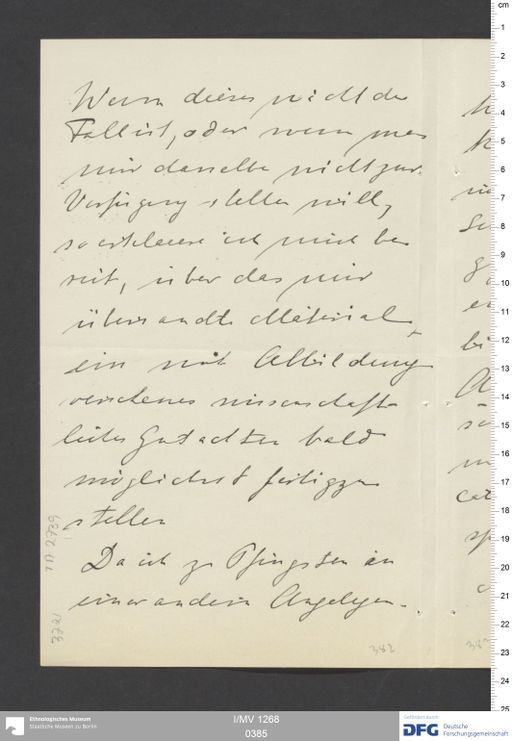 Wenn dieses nicht der
Fall ist, oder wenn man
mir dasselbe nicht zur
Verfügung stellen will,
so erklaere ich mich be
reit, über das mir
übersandte Material
ein mit Abbildung
versehenes wissenschaft
liches Gutachten bald
möglichst fertigzu
stellen
Da ich zu Pfingsten in
einer andern Angelegen-
382
I/MV 1268
0385
Ethnologisches Museum
Staatliche Museen zu Berlin
Gefördert durch
DFG Deutsche
Forschungsgemeinschaft
cm
1
2
3
4
5
6
7
8
9
10
11
12
13
14
15
16
17
18
19
20
21
22
23
24
25